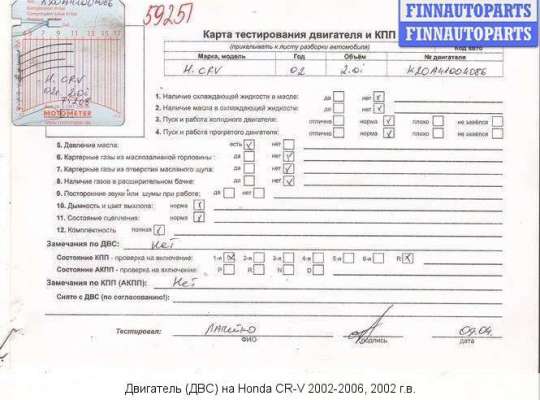 FINNAUTOPARTS
FINNAUTOPARTS
K20A41004086
59251
H. CRV
02 2.0i
MOTOMETER
Карта тестирования двигателя и КПП
(прикалывать к листу разборки автомобиля)
Марка, модель Год Объём № двигателя
Код авто
H. CRV 02 2.0i K20A41004086
1. Наличие охлаждающей жидкости в масле: да нет
2. Наличие масла в охлаждающей жидкости: да нет
3. Пуск и работа холодного двигателя: отлично норма плохо не завёлся
4. Пуск и работа прогретого двигателя: отлично норма плохо не завёлся
5. Давление масла: есть нет
6. Картерные газы из маслозаливной горловины: да нет
7. Картерные газы из отверстия масляного щупа: да нет
8. Наличие газов в расширительном бачке: да нет
9. Посторонние звуки или шумы при работе: да нет
10. Дымность и цвет выхлопа: норма
11. Состояние сцепления: норма
12. Комплектность полная
Замечания по ДВС: Нет
Состояние КПП - проверка на включение: 1-я 2-я 3-я 4-я 5-я 6-я R
Состояние АКПП - проверка на включение: P R N D
Замечания по КПП (АКПП): Нет
Снято с ДВС (по согласованию!):
Тестировал: 09.04
ФИО подпись дата
Двигатель (ДВС) на Honda CR-V 2002-2006, 2002 г.в.